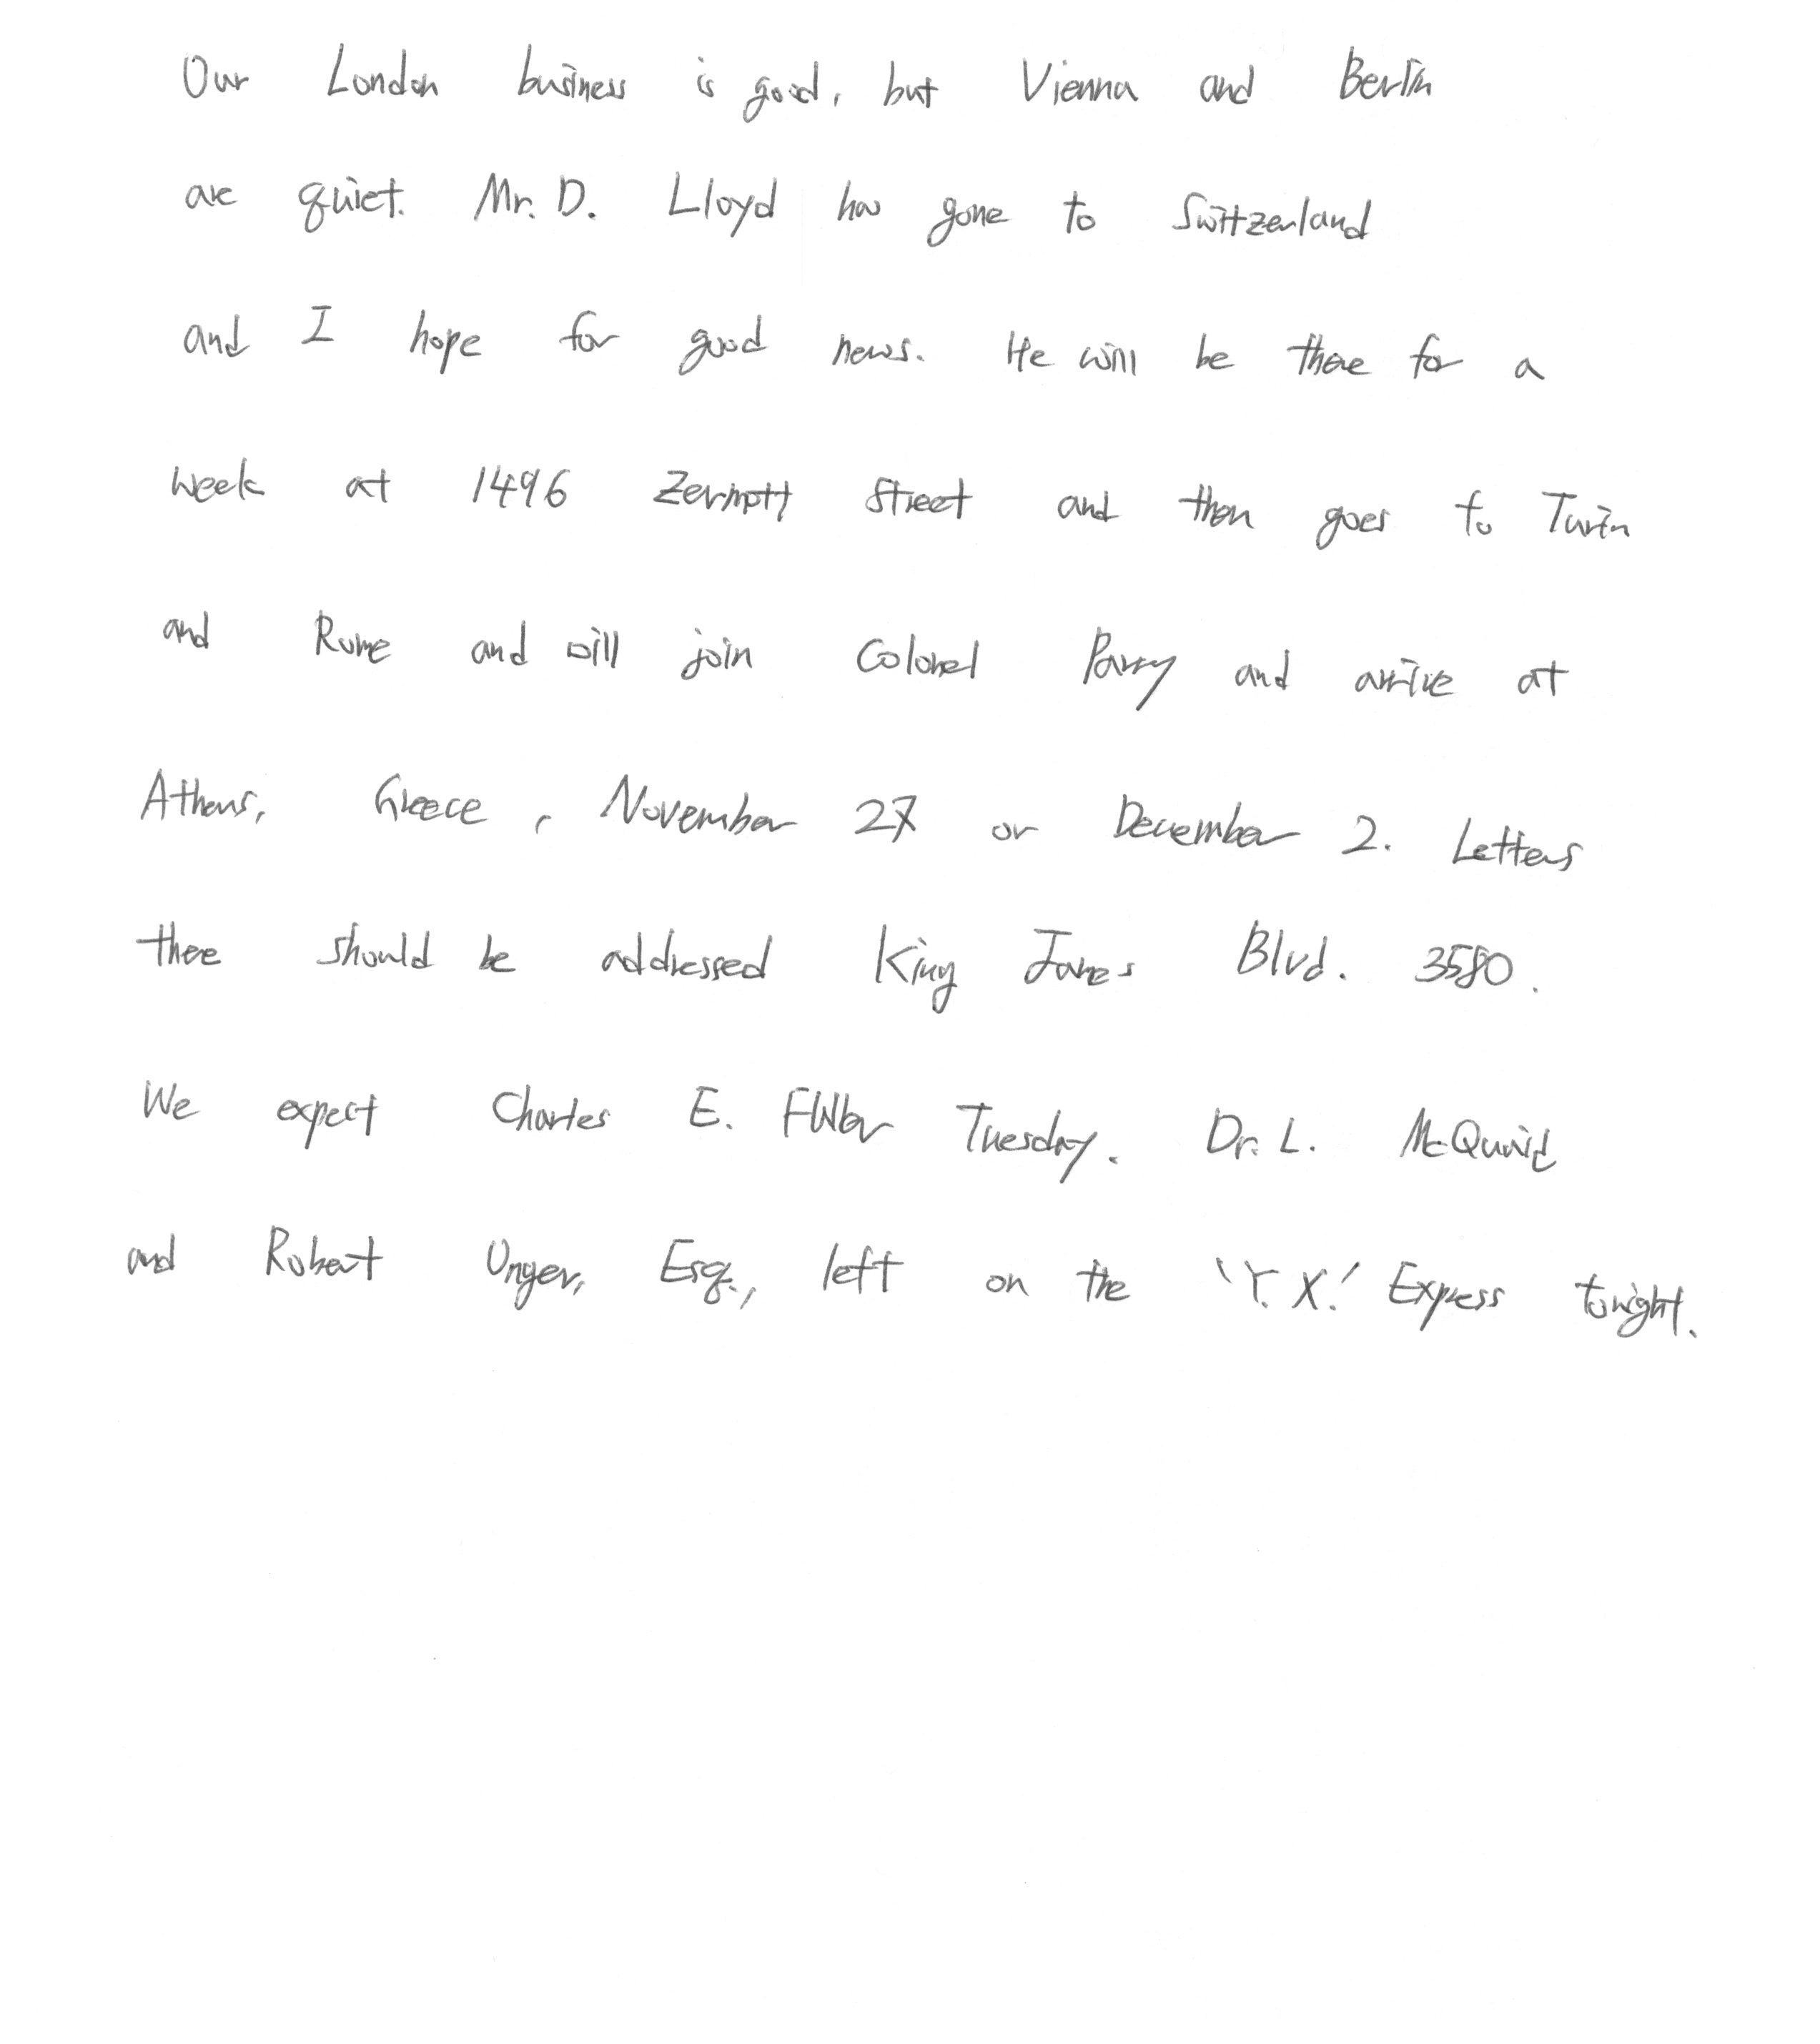 Our London business is good, but Vienna and Berlin
are quiet. Mr. D. Lloyd has gone to Switzerland
and I hope for good news. He will be there for a
week at 1496 Zermott Street and then goes to Turin
and Rome and will join Colonel Parry and arrive at
Athens, Greece, November 27 or December 2. Letters
there should be addressed King James Blvd. 3580.
We expect Charles E. Fuller Tuesday. Dr. L. McQuaid
and Robert Unger, Esq., left on the 'Y.X.' Express tonight.